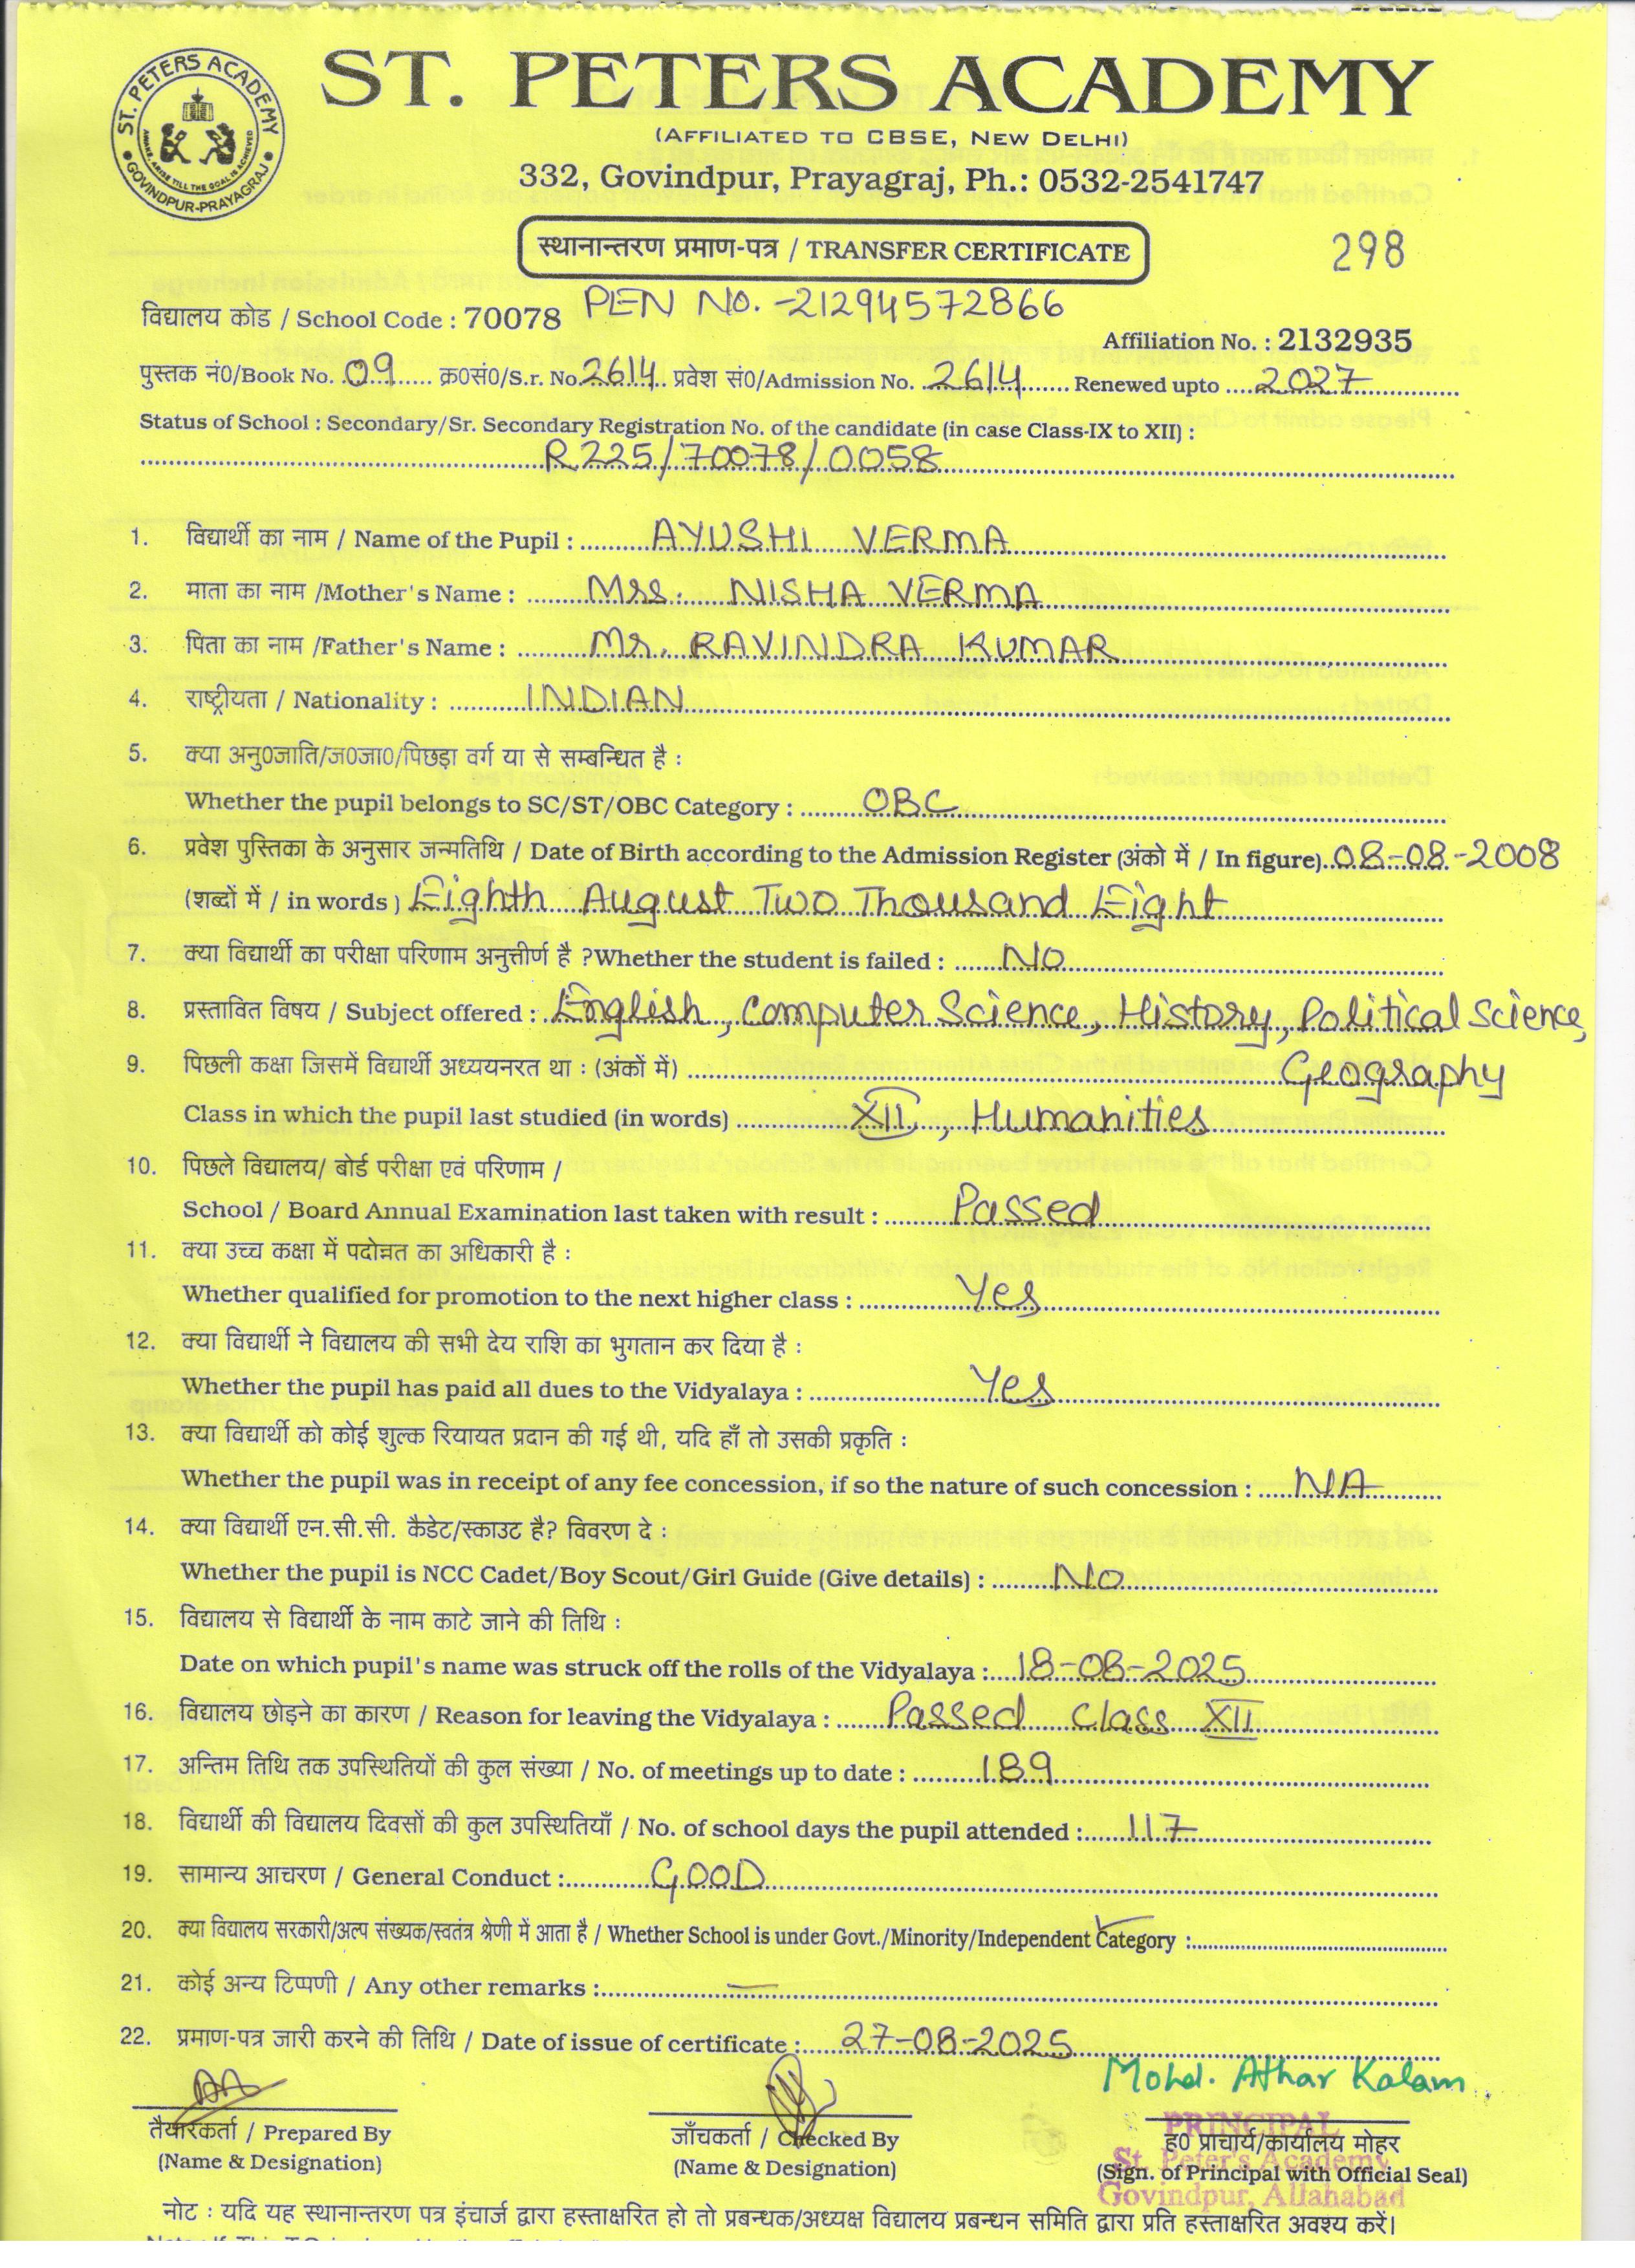 ST. PETERS ACADEMY
ST. PETERS ACADEMY
AWAKE, ARISE TILL THE GOAL IS ACHIEVED
GOVINDPUR-PRAYAGRAJ
(AFFILIATED TO CBSE, NEW DELHI)
332, Govindpur, Prayagraj, Ph.: 0532-2541747
स्थानान्तरण प्रमाण-पत्र / TRANSFER CERTIFICATE
298
विद्यालय कोड / School Code : 70078 PEN No. -21294572866
Affiliation No. : 2132935
पुस्तक नं0/Book No. 09 क्र0सं0/S.r. No. 2614 प्रवेश सं0/Admission No. 2614 Renewed upto 2027
Status of School : Secondary/Sr. Secondary Registration No. of the candidate (in case Class-IX to XII) :
R225/70078/0058
1. विद्यार्थी का नाम / Name of the Pupil : AYUSHI VERMA
2. माता का नाम /Mother's Name : Mrs. NISHA VERMA
3. पिता का नाम /Father's Name : Mr. RAVINDRA KUMAR
4. राष्ट्रीयता / Nationality : INDIAN
5. क्या अनु0जाति/ज0जा0/पिछड़ा वर्ग या से सम्बन्धित है :
Whether the pupil belongs to SC/ST/OBC Category : OBC
6. प्रवेश पुस्तिका के अनुसार जन्मतिथि / Date of Birth according to the Admission Register (अंको में / In figure) 08-08-2008
(शब्दों में / in words ) Eighth August Two Thousand Eight
7. क्या विद्यार्थी का परीक्षा परिणाम अनुत्तीर्ण है ?Whether the student is failed : No
8. प्रस्तावित विषय / Subject offered : English, Computer Science, History, Political Science,
9. पिछली कक्षा जिसमें विद्यार्थी अध्ययनरत था : (अंकों में) Geography
Class in which the pupil last studied (in words) XII, Humanities
10. पिछले विद्यालय/ बोर्ड परीक्षा एवं परिणाम /
School / Board Annual Examination last taken with result : Passed
11. क्या उच्च कक्षा में पदोन्नत का अधिकारी है :
Whether qualified for promotion to the next higher class : Yes
12. क्या विद्यार्थी ने विद्यालय की सभी देय राशि का भुगतान कर दिया है :
Whether the pupil has paid all dues to the Vidyalaya : Yes
13. क्या विद्यार्थी को कोई शुल्क रियायत प्रदान की गई थी, यदि हाँ तो उसकी प्रकृति :
Whether the pupil was in receipt of any fee concession, if so the nature of such concession : NA
14. क्या विद्यार्थी एन.सी.सी. कैडेट/स्काउट है? विवरण दे :
Whether the pupil is NCC Cadet/Boy Scout/Girl Guide (Give details) : No
15. विद्यालय से विद्यार्थी के नाम काटे जाने की तिथि :
Date on which pupil's name was struck off the rolls of the Vidyalaya : 18-08-2025
16. विद्यालय छोड़ने का कारण / Reason for leaving the Vidyalaya : Passed Class XII
17. अन्तिम तिथि तक उपस्थितियों की कुल संख्या / No. of meetings up to date : 189
18. विद्यार्थी की विद्यालय दिवसों की कुल उपस्थितियाँ / No. of school days the pupil attended : 117
19. सामान्य आचरण / General Conduct : GOOD
20. क्या विद्यालय सरकारी/अल्प संख्यक/स्वतंत्र श्रेणी में आता है / Whether School is under Govt./Minority/Independent Category :
21. कोई अन्य टिप्पणी / Any other remarks : —
22. प्रमाण-पत्र जारी करने की तिथि / Date of issue of certificate : 27-08-2025
Mohd. Athar Kalam
PRINCIPAL
St. Peter's Academy
Govindpur, Allahabad
तैयारकर्ता / Prepared By जाँचकर्ता / Checked By ह0 प्राचार्य/कार्यालय मोहर
(Name & Designation) (Name & Designation) (Sign. of Principal with Official Seal)
नोट : यदि यह स्थानान्तरण पत्र इंचार्ज द्वारा हस्ताक्षरित हो तो प्रबन्धक/अध्यक्ष विद्यालय प्रबन्धन समिति द्वारा प्रति हस्ताक्षरित अवश्य करें।